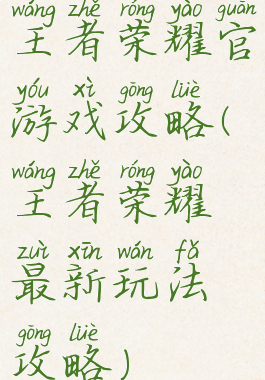 wáng zhě róng yào guān
王者荣耀官
yóu xì gōng lüè
游戏攻略(
wáng zhě róng yào
王者荣耀
zuì xīn wán fǎ
最新玩法
gōng lüè
攻略)